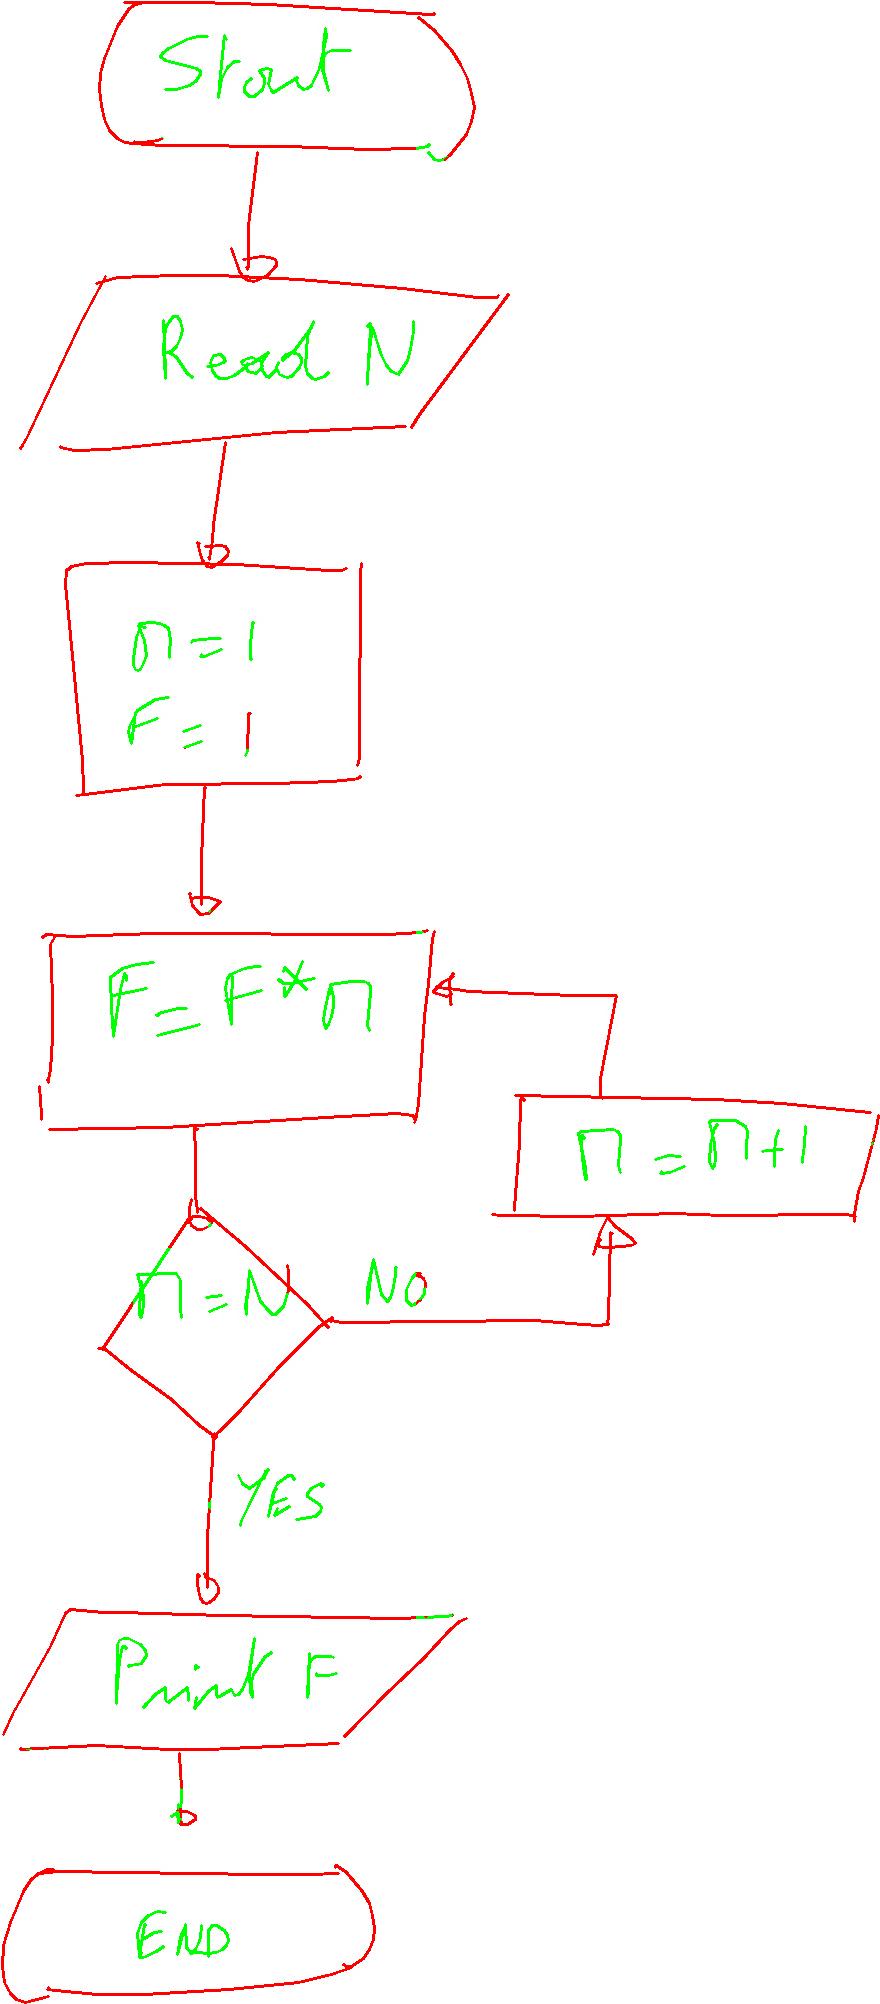 Start
Read N
n = 1
F = 1
F = F * n
n = n + 1
n = N
NO
YES
Print F
END